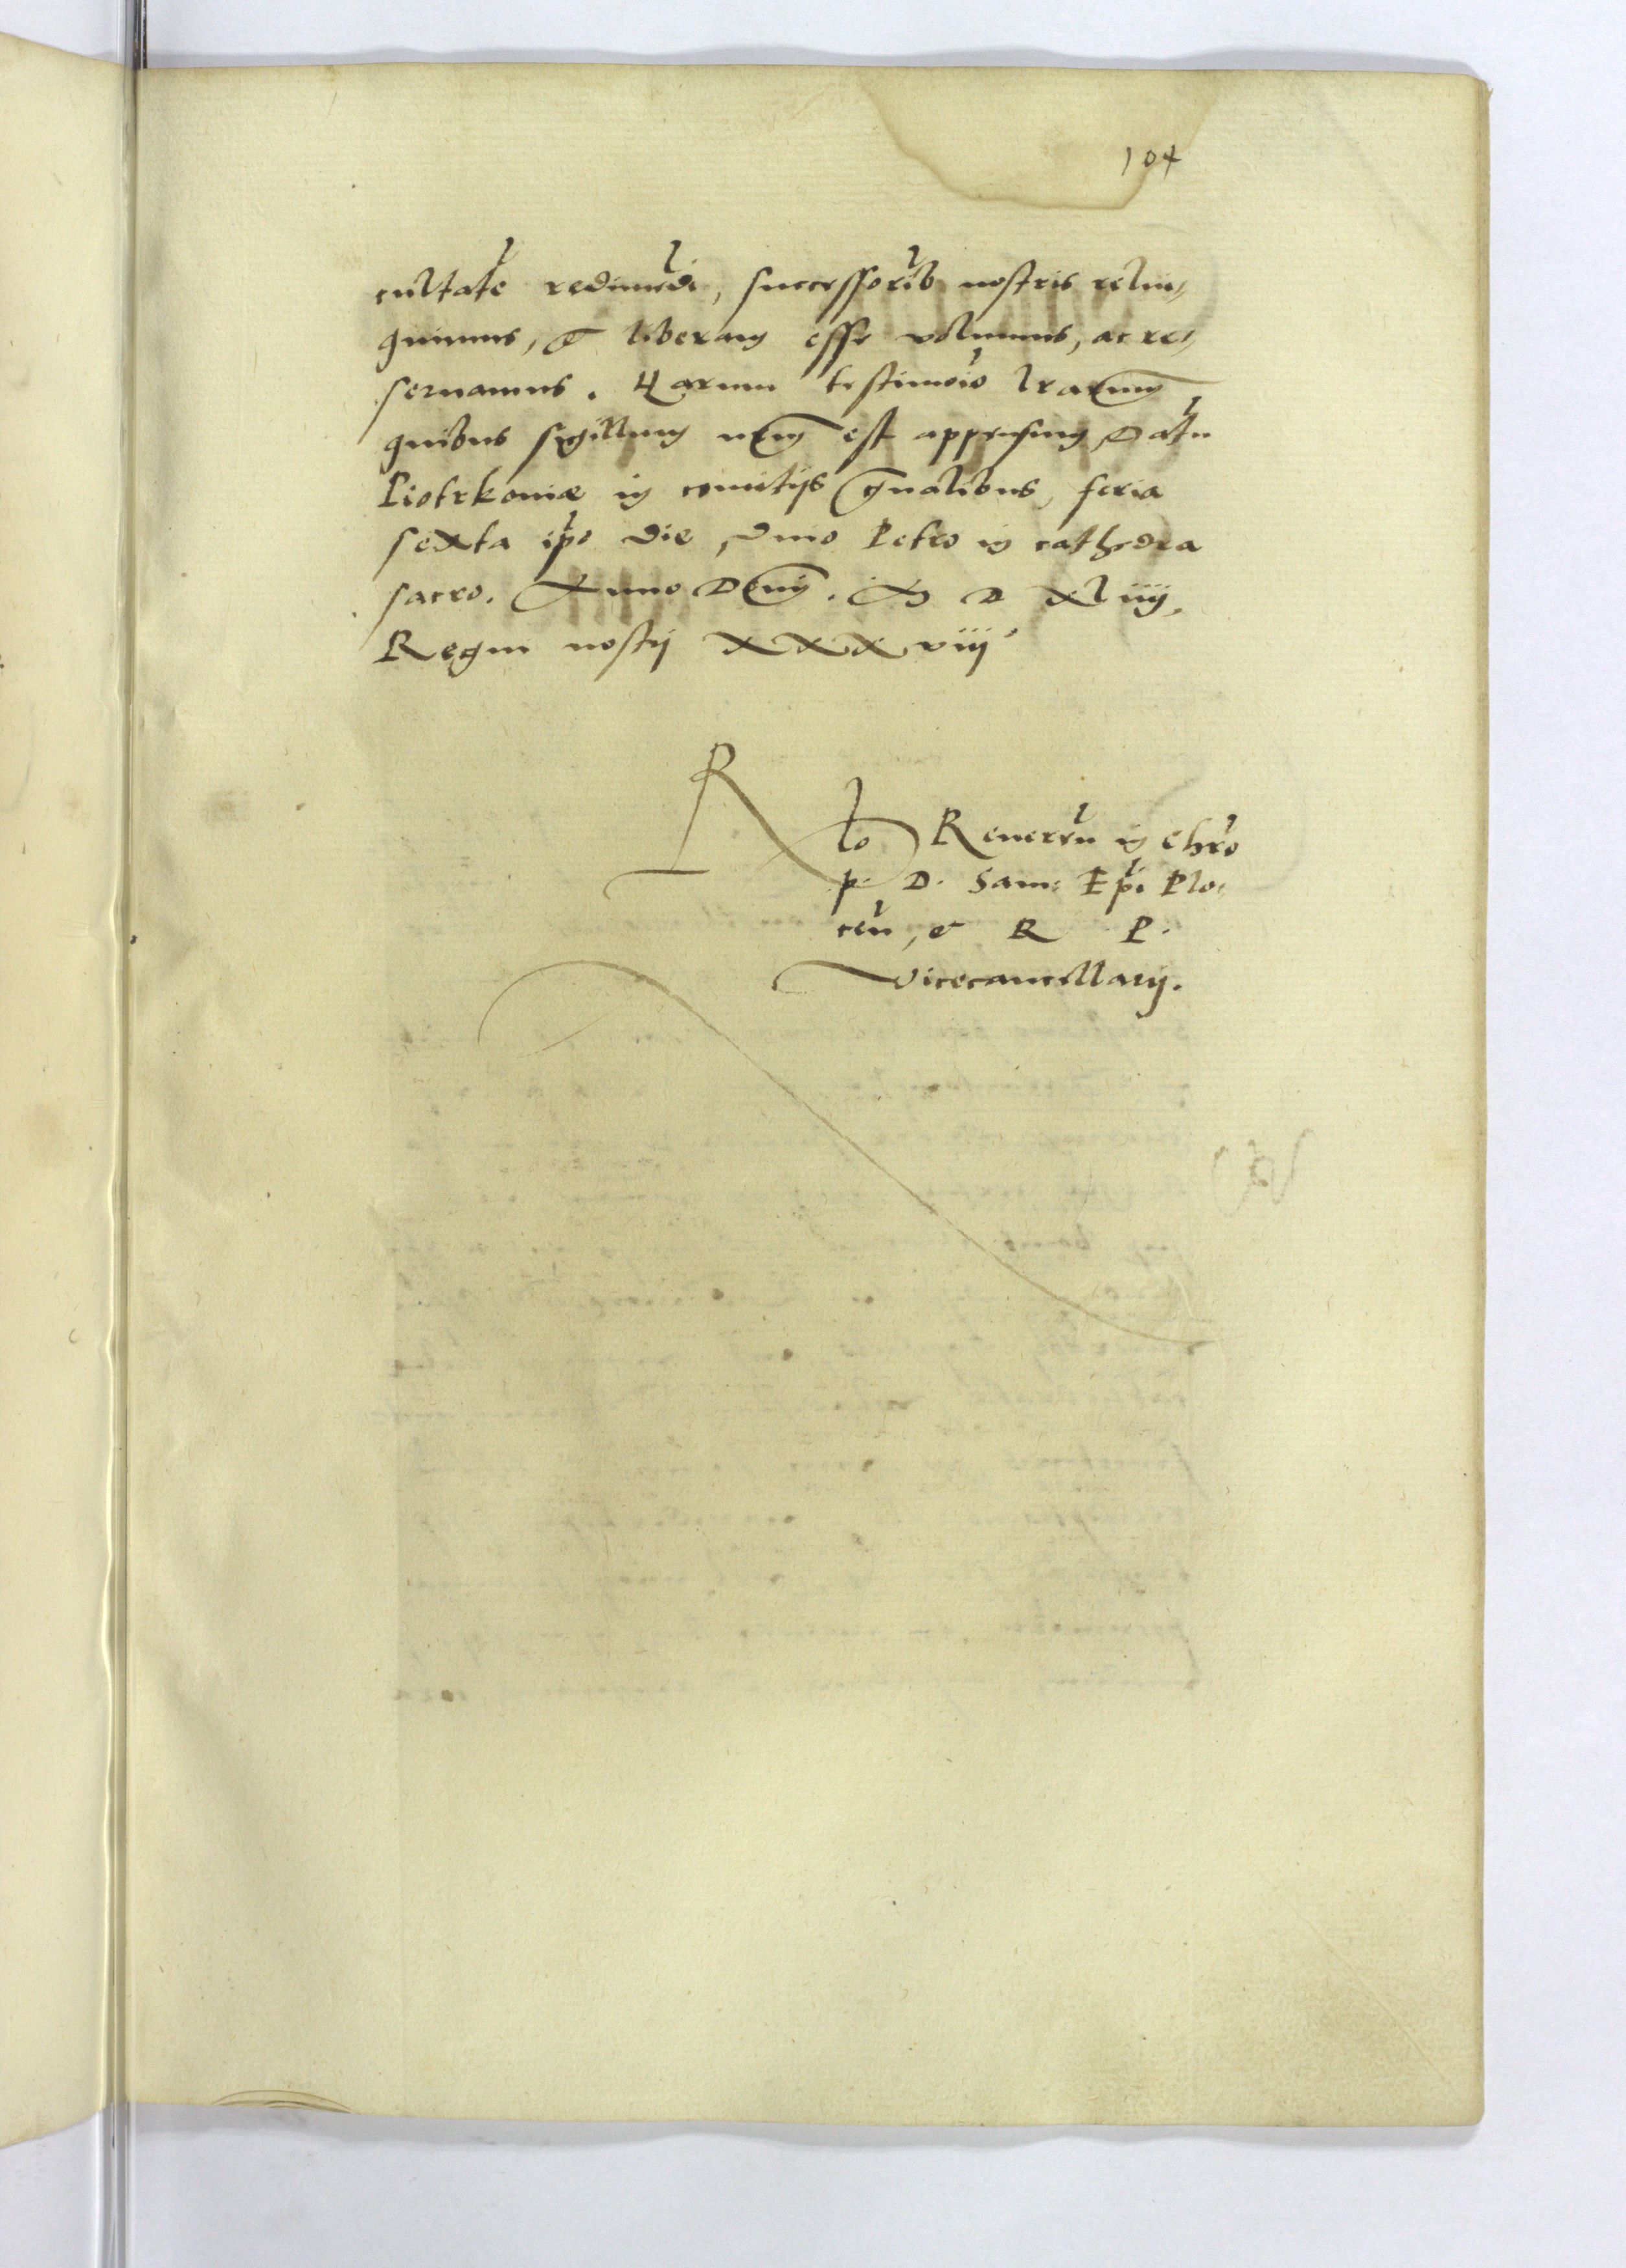 104
cultate redimēdi, successorib nostris relin,,
quimus, & liberam esse volumus, ac re,,
seruamus. Harum testimoīo lrarum
quibus sigillum nrm est appensum, Datū
Piotrkoviæ in comitijs gnalibus, feria
sexta ipo die, diuo Petro in cathedra
sacro. Anno Dnij. M D xliiij.
Regni nostrj xxxviij
R
to Reueren in Chro
p. D. Sam: Epi Plo,
cen, & R P.
Vicecancellarij.